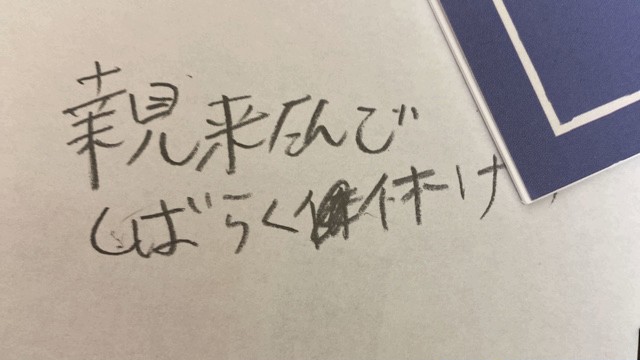 親見来たんで
しばらく休け